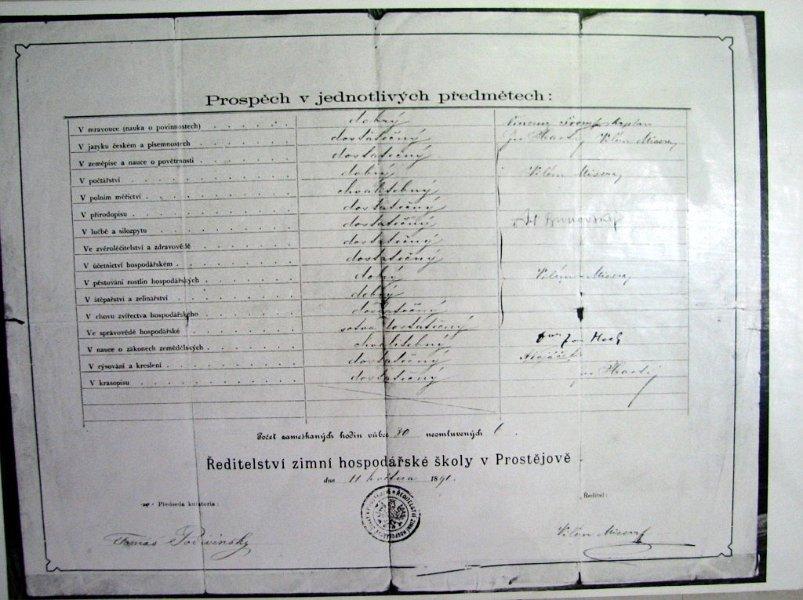 Prospěch v jednotlivých předmětech:
V mravouce (nauka o povinnostech) dobrý
V jazyku českém a písemnostech dostatečný Vilém
V zeměpise a nauce o povětrnosti dostatečný
V počtářství dobrý Vilém
V polním měřictví chvalitebný
V přírodopisu dostatečný
V lučbě a silozpytu dostatečný
Ve zvěroléčitelství a zdravovědě dostatečný
V účetnictví hospodářském dostatečný
V pěstování rostlin hospodářských dobrý
V štěpařství a zelinařství dobrý
V chovu zvířectva hospodářského dostatečný
Ve správovědě hospodářské sotva dostatečný
V nauce o zákonech zemědělských chvalitebný
V rýsování a kreslení dostatečný
V krasopisu dostatečný
Počet zameškaných hodin vůbec 30 neomluvených
Ředitelství zimní hospodářské školy v Prostějově
dne 11 května 1891.
Předseda kuratoria:
Ředitel:
Vilém